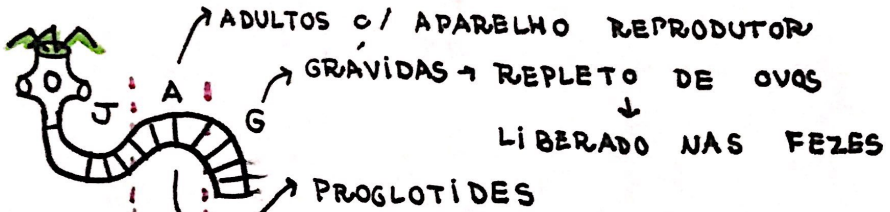 ADULTOS c/ APARELHO REPRODUTOR
J A G
GRÁVIDAS → REPLETO DE OVOS
↓
LIBERADO NAS FEZES
PROGLOTIDES